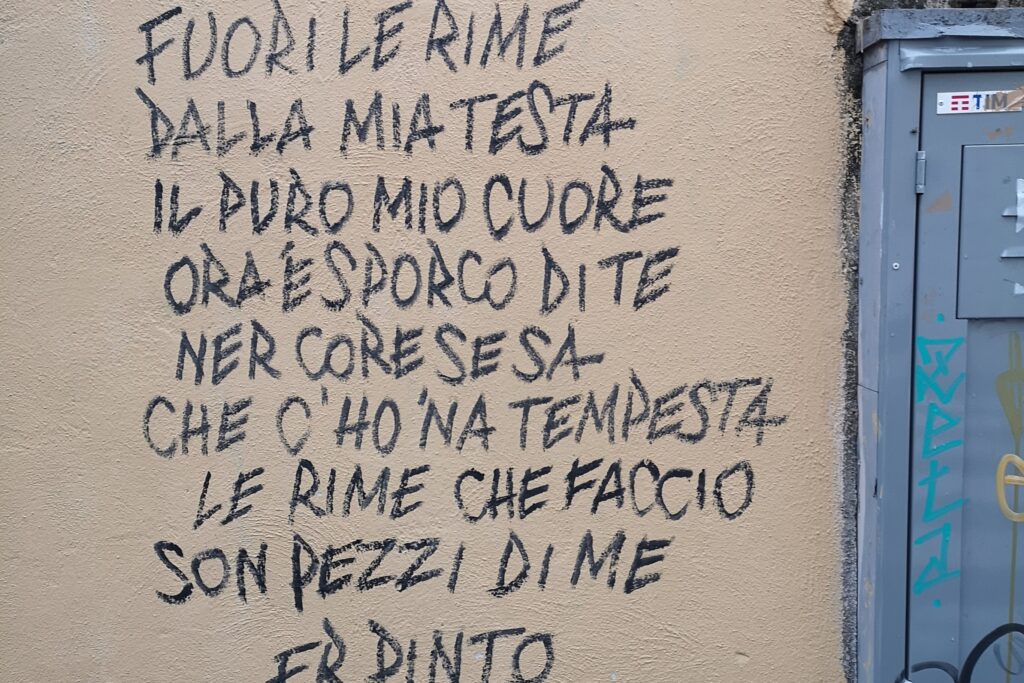 FUORI LE RIME
DALLA MIA TESTA
IL PURO MIO CUORE
ORA È SPORCO DI TE
NER CORE SE SA
CHE C'HO 'NA TEMPESTA
LE RIME CHE FACCIO
SON PEZZI DI ME
ER PINTO
TIM